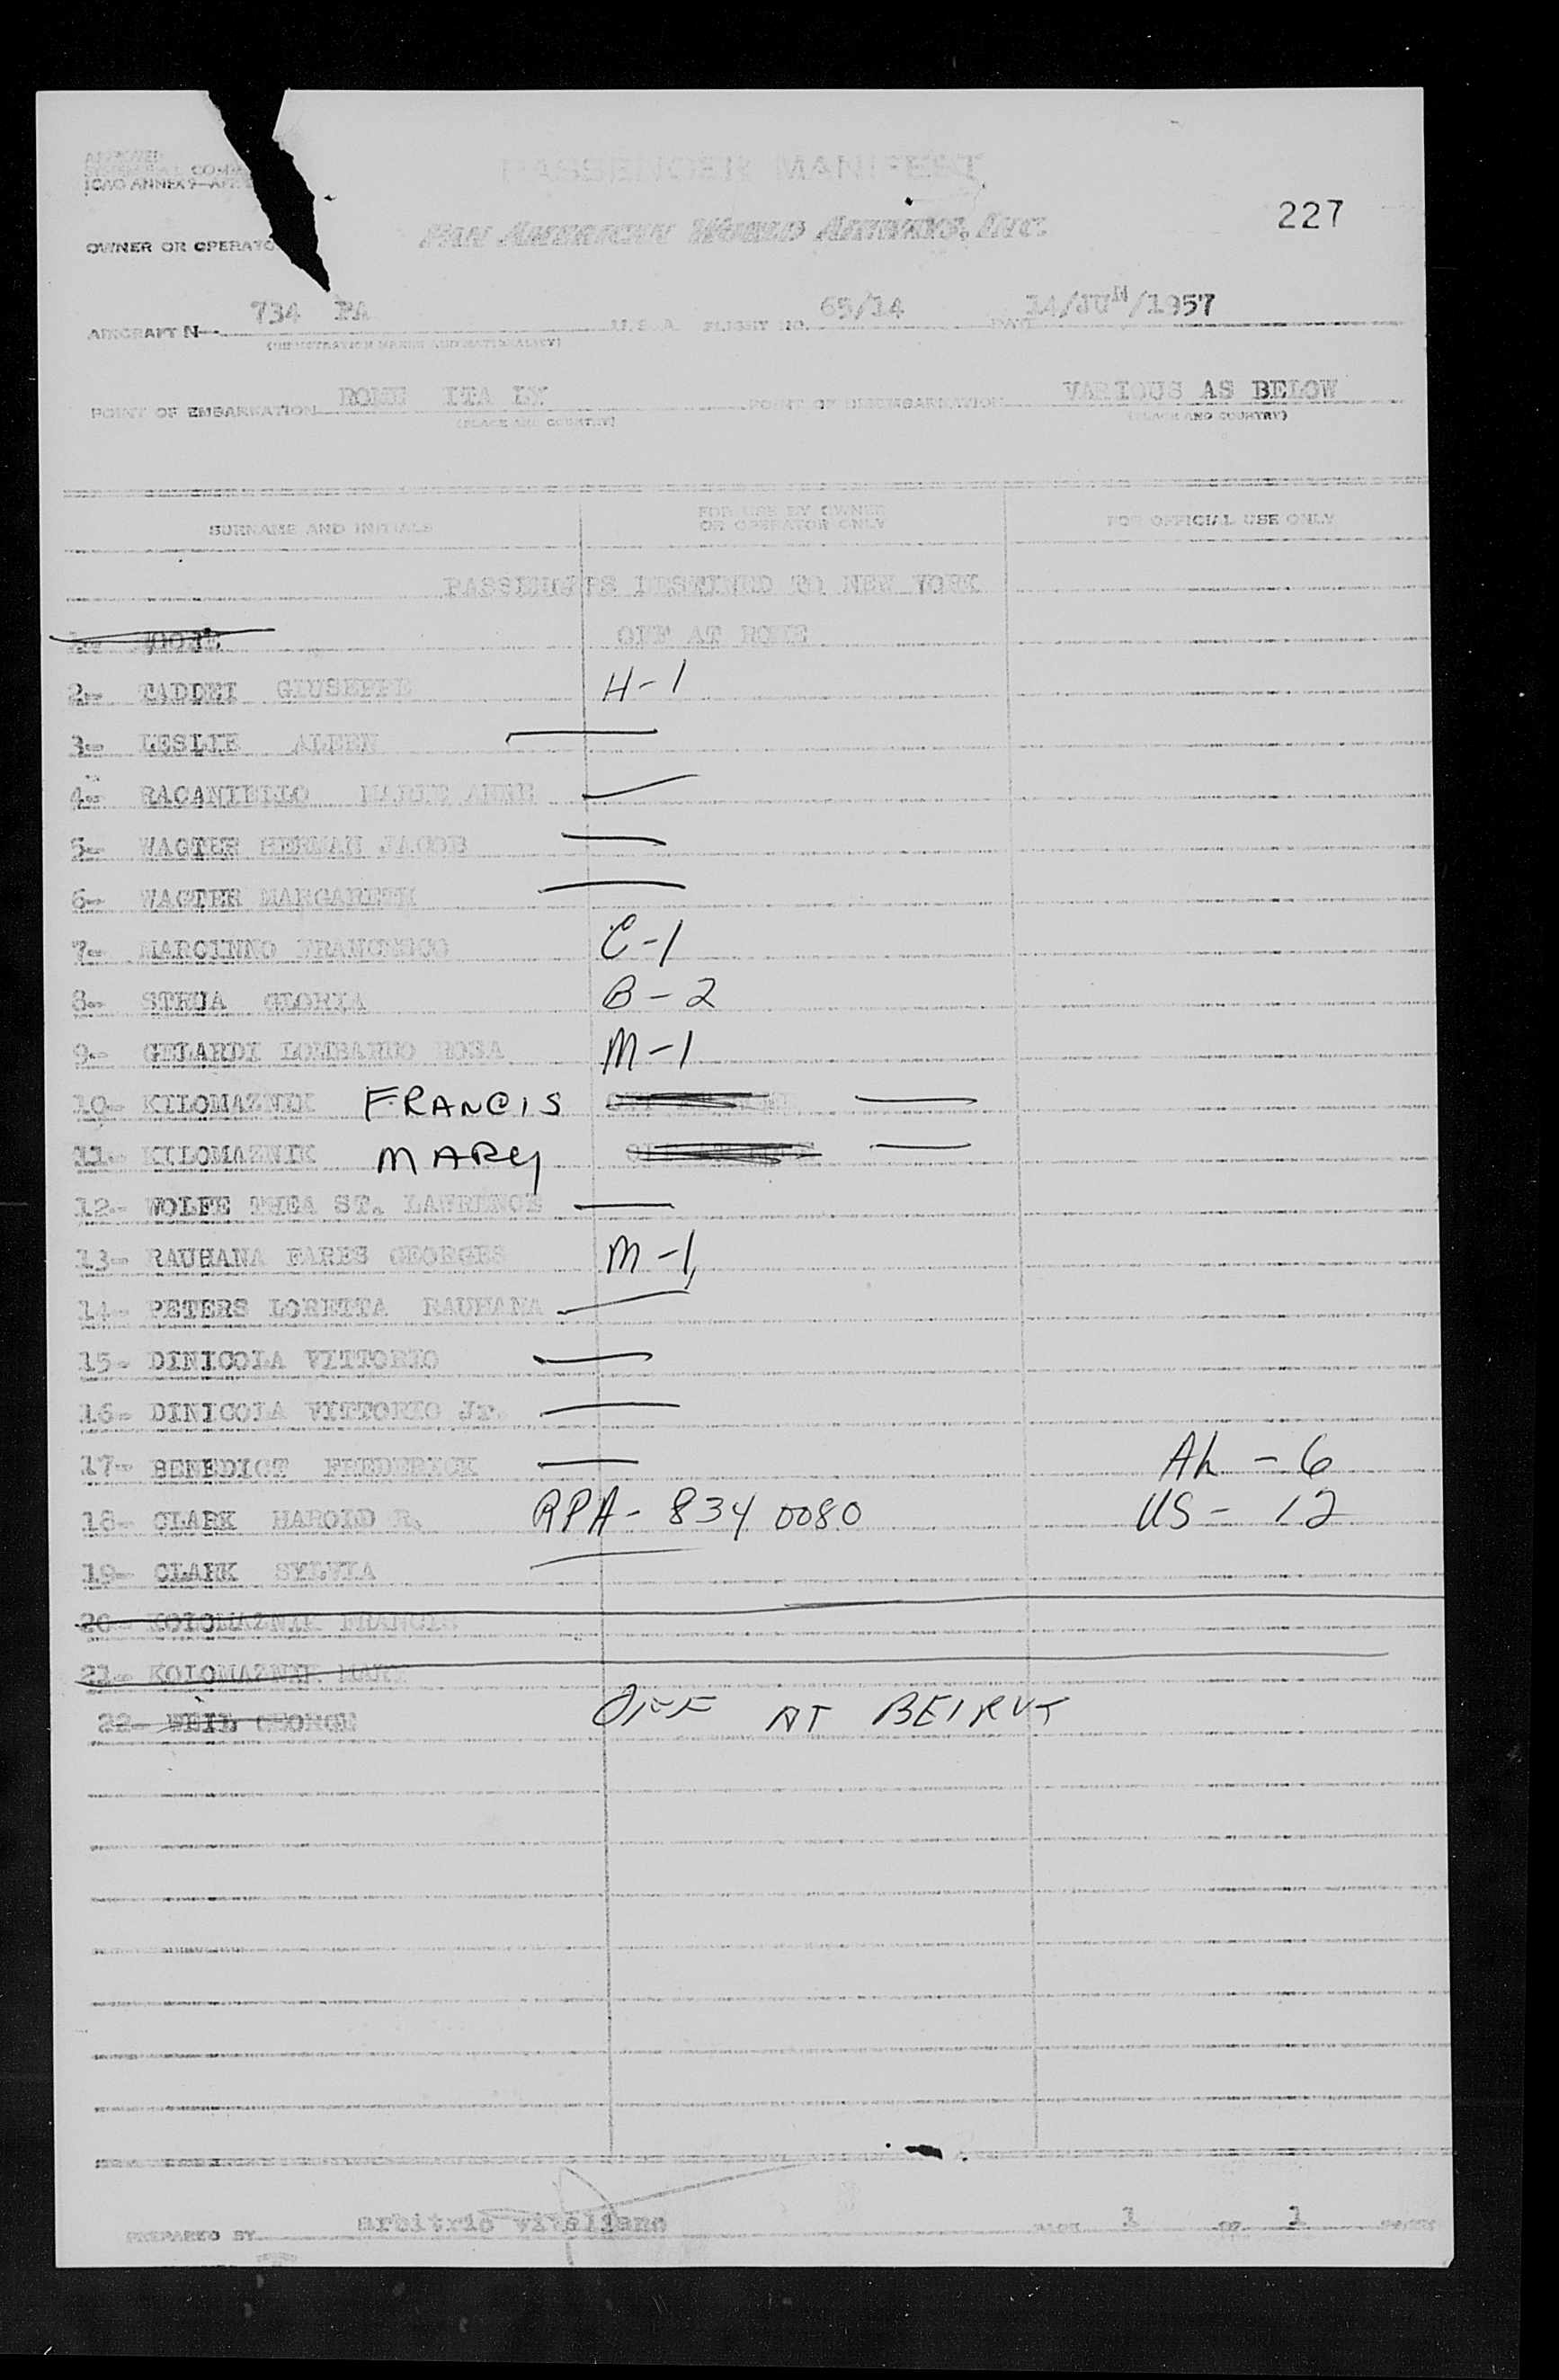 PASSENGER MANIFEST
APPROVED
ICAO ANNEX 9—APP.
227
OWNER OR OPERATO
PAN AMERICAN WORLD AIRWAYS, INC.
AIRCRAFT N— 734 PA U.S.A. FLIGHT NO. 65/14 DATE 14/JUN/1957
(REGISTRATION MARKS AND NATIONALITY)
POINT OF EMBARKATION ROME ITA LY POINT OF DISEMBARKATION VARIOUS AS BELOW
(PLACE AND COUNTRY) (PLACE AND COUNTRY)
SURNAME AND INITIALS FOR USE BY OWNER OR OPERATOR ONLY FOR OFFICIAL USE ONLY
PASSENGERS DESTINED TO NEW YORK
1- OFF AT ROME
2- TADDEI GIUSEPPE H-1
3- LESLIE ALDEN
4- RACANIELLO MARIE ANNE
5- WAGTER HERMAN JACOB
6- WAGTER MARGARETH
7- MARCINNO FRANCESCO C-1
8- STRUA GLORIA B-2
9- GELARDI LOMBARDO ROSA M-1
10- KILOMAZNIK FRANCIS
11- KILOMAZNIK MARY
12- WOLFE THEA ST. LAURENCE
13- RAUHANA FARES GEORGES M-1
14- PETERS LORETTA RAUHANA
15- DINICOLA VITTORIO
16- DINICOLA VITTORIO Jr.
17- BENEDICT FREDERICK AL - 6
18- CLARK HAROLD R. RPA- 834 0080 US - 12
19- CLARK SYLVIA
20- KOLOMAZNIK FRANCIS
21- KOLOMAZNIK MARY
22- WEIL GEORGE OFF AT BEIRUT
PREPARED BY arbitrio vitaliano PAGE 1 OF 1 PAGES